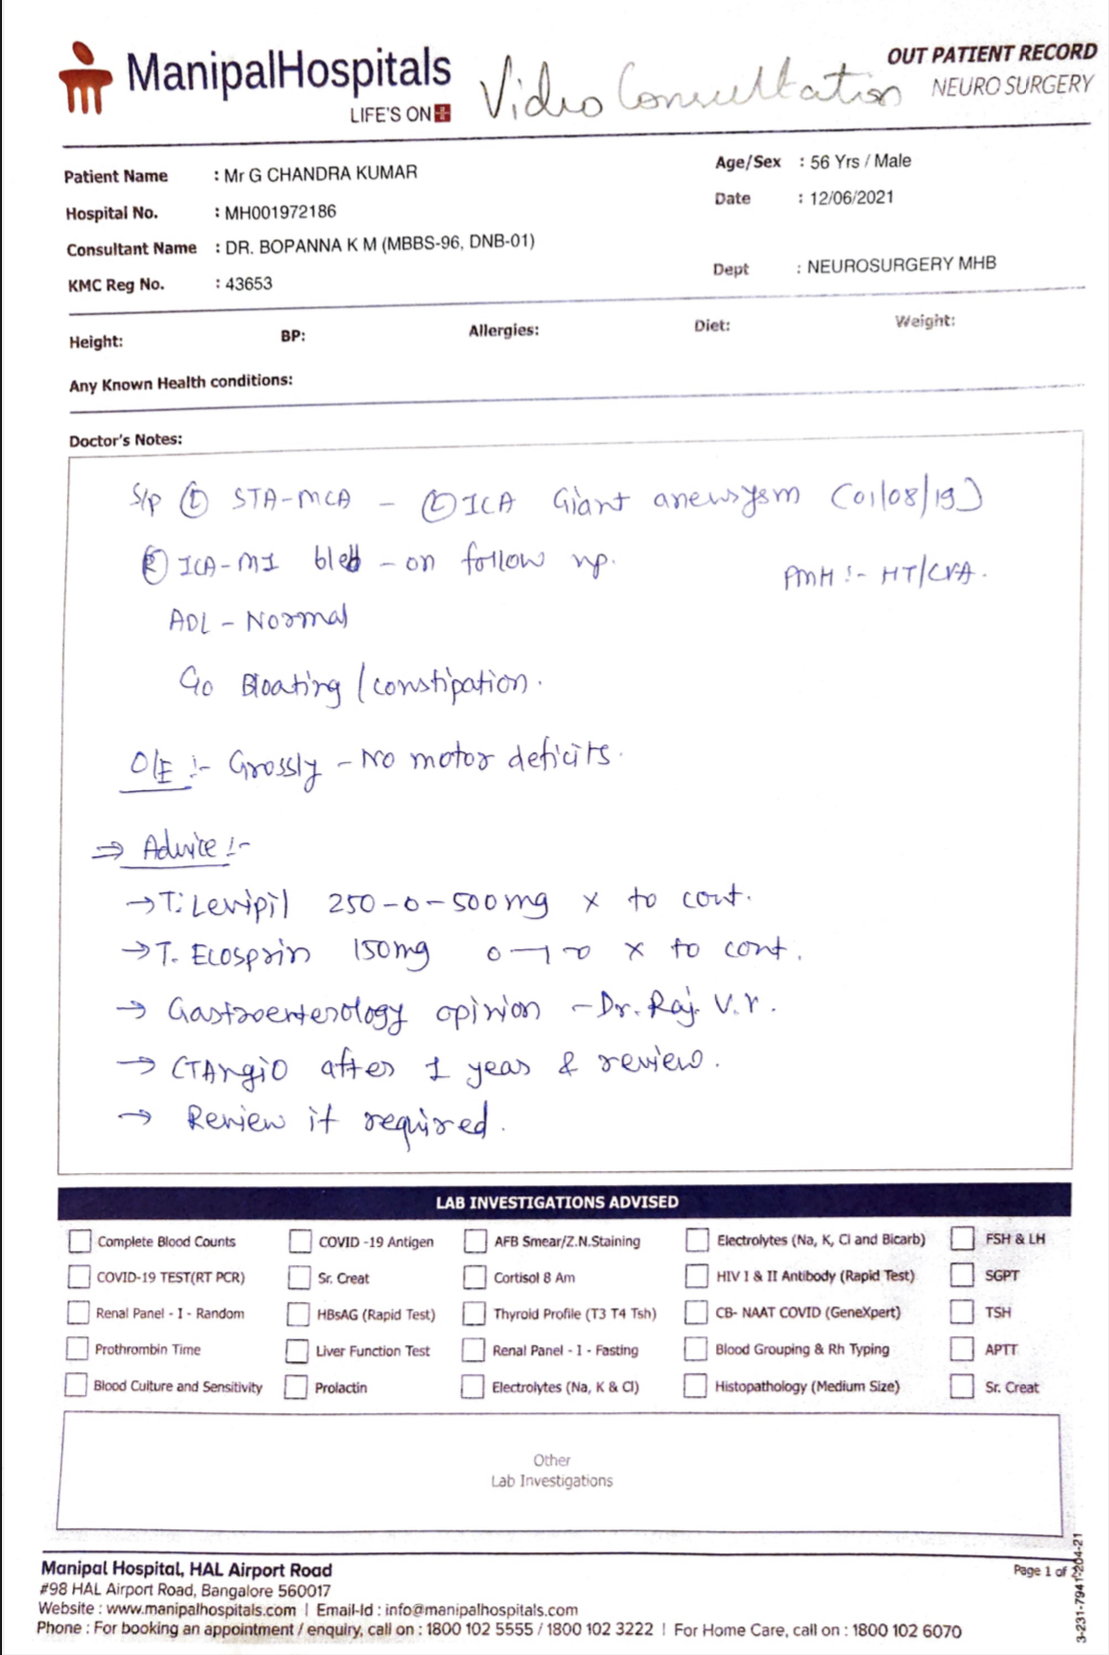 ManipalHospitals
LIFE'S ON
Video Consultation
OUT PATIENT RECORD
NEURO SURGERY
Patient Name : Mr G CHANDRA KUMAR
Age/Sex : 56 Yrs / Male
Hospital No. : MH001972186
Date : 12/06/2021
Consultant Name : DR. BOPANNA K M (MBBS-96, DNB-01)
KMC Reg No. : 43653
Dept : NEUROSURGERY MHB
Height: BP: Allergies: Diet: Weight:
Any Known Health conditions:
Doctor's Notes:
S/p Ⓛ STA-MCA - Ⓛ ICA Giant aneurysm (01/08/19)
Ⓡ ICA-M1 bleb - on follow up.
PMH :- HT/CVA.
ADL - Normal
C/o Bloating / constipation.
O/E :- Grossly - No motor deficits.
⇒ Advice :-
→ T. Levipil 250-0-500mg x to cont.
→ T. Ecosprin 150mg 0-1-0 x to cont.
→ Gastroenterology opinion - Dr. Raj. V. Y.
→ CTAngio after 1 year & review.
→ Review if required.
LAB INVESTIGATIONS ADVISED
Complete Blood Counts COVID -19 Antigen AFB Smear/Z.N.Staining Electrolytes (Na, K, Cl and Bicarb) FSH & LH
COVID-19 TEST(RT PCR) Sr. Creat Cortisol 8 Am HIV I & II Antibody (Rapid Test) SGPT
Renal Panel - I - Random HBsAG (Rapid Test) Thyroid Profile (T3 T4 Tsh) CB- NAAT COVID (GeneXpert) TSH
Prothrombin Time Liver Function Test Renal Panel - I - Fasting Blood Grouping & Rh Typing APTT
Blood Culture and Sensitivity Prolactin Electrolytes (Na, K & Cl) Histopathology (Medium Size) Sr. Creat
Other
Lab Investigations
Manipal Hospital, HAL Airport Road
Page 1 of
#98 HAL Airport Road, Bangalore 560017
Website : www.manipalhospitals.com | Email-Id : info@manipalhospitals.com
Phone : For booking an appointment / enquiry, call on : 1800 102 5555 / 1800 102 3222 | For Home Care, call on : 1800 102 6070
3-231-7941-204-21